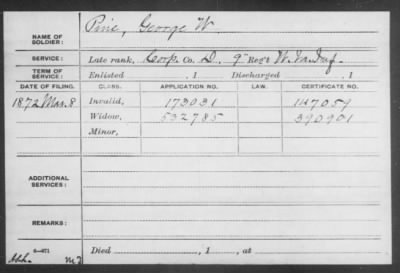 NAME OF SOLDIER: Pine, George W.
SERVICE: Late rank, Corp. Co. D. 9" Reg't W. Va. Inf.
TERM OF SERVICE: Enlisted , 1 Discharged , 1
DATE OF FILING. CLASS. APPLICATION NO. LAW. CERTIFICATE NO.
1872 Mar. 8 Invalid, 173031 147059
Widow, 532785 390901
Minor,
ADDITIONAL SERVICES:
REMARKS:
Died , 1 , at